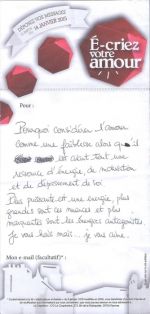 DÉPOSEZ VOS MESSAGES
14 JANVIER 2015
É-criez
votre
amour
Pour :
Pourquoi considérer l'amour
comme une faiblesse alors qu'il
est avant tout une
source d'énergie, de motivation
et de dépassement de soi.
Plus puissante est une énergie, plus
grandes sont ces nuances et plus
marquantes sont les énergies antagonistes.
Je vous hais... je vous aime.
Mon e-mail (facultatif)* :